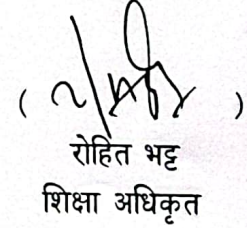 ( )
रोहित भट्ट
शिक्षा अधिकृत